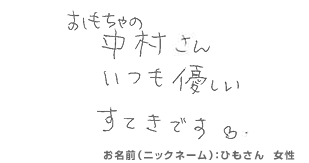 おもちゃの
中村さん
いつも優しい
すてきです
お名前(ニックネーム):ひもさん 女性